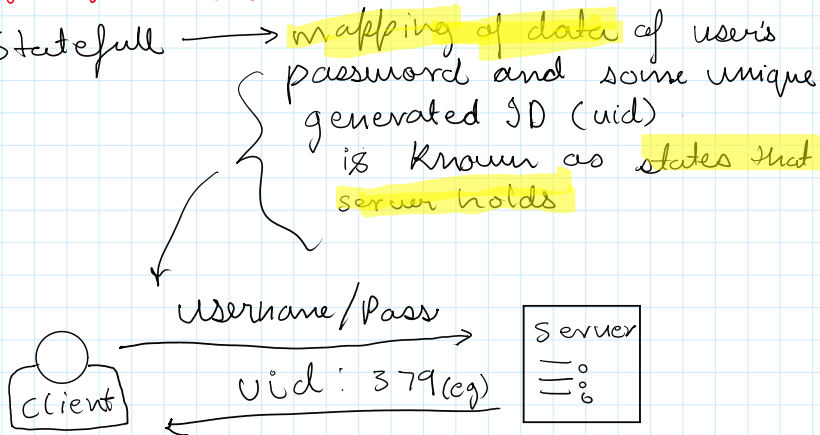 Statefull → mapping of data of user's
password and some unique
generated ID (uid)
is known as states that
server holds
Username/Pass
Server
uid: 379(eg)
Client